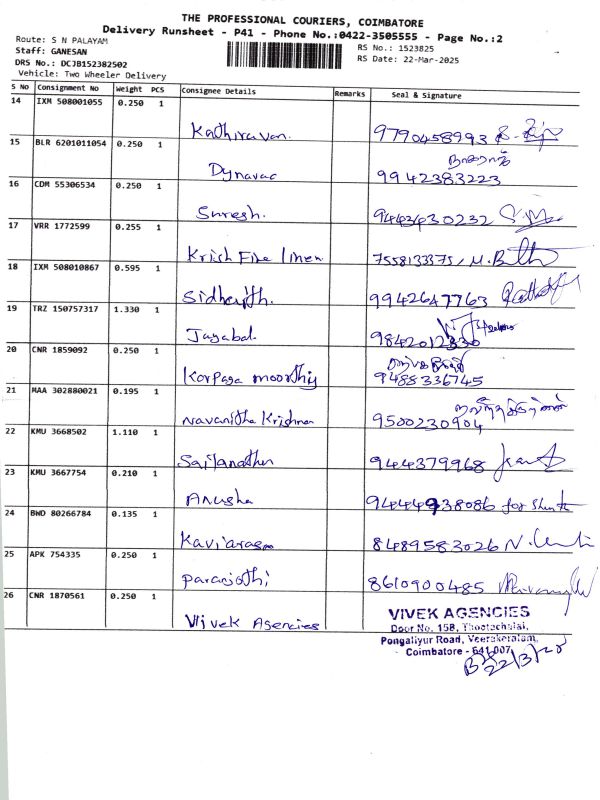 THE PROFESSIONAL COURIERS, COIMBATORE
Delivery Runsheet - P41 - Phone No.:0422-3505555 - Page No.:2
Route: S N PALAYAM
RS No.: 1523825
Staff: GANESAN
RS Date: 22-Mar-2025
DRS No.: DCJB152382502
Vehicle: Two Wheeler Delivery
S No Consignment No Weight PCS Consignee Details Remarks Seal & Signature
14 IXM 508001055 0.250 1
Kathiravan. 9790458993
15 BLR 6201011054 0.250 1
Dynavac 9942383223
16 CDM 55306534 0.250 1
Suresh. 9443430232
17 VRR 1772599 0.255 1
Krish Fine linen 7558133375
18 IXM 508010867 0.595 1
Sidharth. 9942647763
19 TRZ 150757317 1.330 1
Jayabal.
20 CNR 1859092 0.250 1
Karpaga moorthiy 9488336745
21 MAA 302880021 0.195 1
Navanitha Krishnan 9500230904
22 KMU 3668502 1.110 1
944379968
23 KMU 3667754 0.210 1
Anusha
24 BWD 80266784 0.135 1
Kaviarasu 8489583026
25 APK 754335 0.250 1
Paranjothi 8610900485
26 CNR 1870561 0.250 1
Vivek Agencies
VIVEK AGENCIES
Door No. 15B, Thootachalai,
Pongaliyur Road, Veerakeralam,
Coimbatore - 641 007
22/3/25